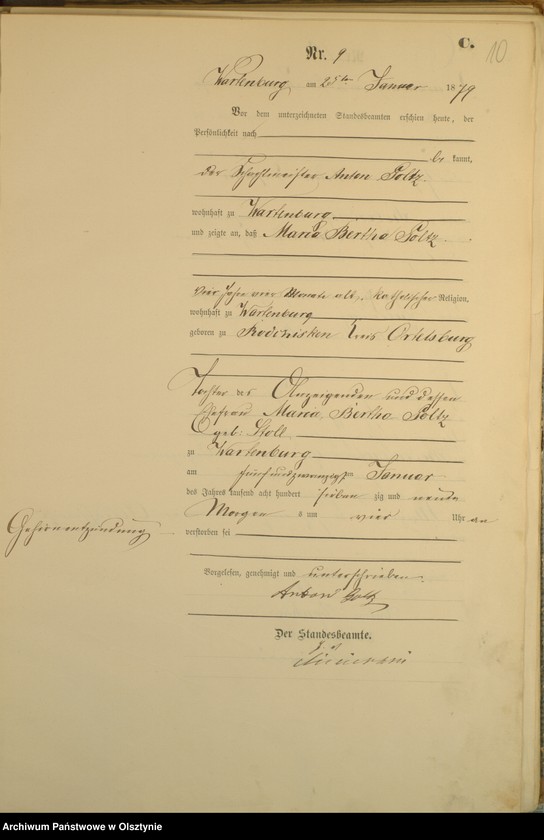 C.
10
Nr. 9
Wartenburg am 25ten Januar 1879
Vor dem unterzeichneten Standesbeamten erschien heute, der
Persönlichkeit nach
be kannt,
der Schachtmeister Anton Goltz.
wohnhaft zu Wartenburg
und zeigte an, daß Maria Bertha Goltz
vier Jahre vier Monate alt, katholischer Religion,
wohnhaft zu Wartenburg
geboren zu Ortelsburg
Tochter des Anzeigenden und dessen
Ehefrau Maria Bertha Goltz
geb: Stoll
zu Wartenburg
am fünfundzwanzigsten Januar
des Jahres tausend acht hundert sieben zig und neun
Morgen s um vier Uhr an
Gehirnentzündung
verstorben sei
Vorgelesen, genehmigt und unterschrieben.
Anton Goltz
Der Standesbeamte.
Archiwum Państwowe w Olsztynie